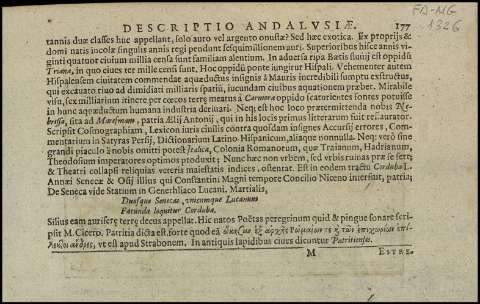 DESCRIPTIO ANDALVSIÆ. 177
FA-MG
1326
tannis duæ classes huc appellant, solo auro vel argento onustæ? Sed hæc exotica. Ex proprijs &
domi natis incolæ singulis annis regi pendunt sesquimillionem auri. Superioribus hisce annis vi-
ginti quatuor ciuium millia censa sunt familiam alentium. In aduersa ripa Bætis fluuij est oppidũ
Triana, in quo ciues ter mille censi sunt. Hoc oppidũ ponte iungitur Hispali. Vehementer autem
Hispalensem ciuitatem commendat aquæductus insignis à Mauris incredibili sumptu exstructus,
qui excauato riuo ad dimidiati milliaris spatiũ, iucundam ciuibus aquationem præbet. Mirabile
visu, sex milliarium itinere per cœcos terræ meatus à Carmona oppido scaturientes fontes potuisse
in hunc aquæductum humana industria deriuari. Neq; est hoc loco prætermittenda nobis Ne-
brissa, sita ad Marismam, patria Ælij Antonij, qui in his locis primus litterarum fuit restaurator.
Scripsit Cosmographiam, Lexicon iuris ciuilis contra quosdam insignes Accursij errores, Com-
mentarium in Satyras Persij, Dictionarium Latino-Hispanicum, aliaque nonnulla. Neq; verò sine
grandi piaculo à nobis omitti potest Italica, Colonia Romanorum, quæ Traianum, Hadrianum,
Theodosium imperatores optimos produxit; Nunc hæc non vrbem, sed vrbis ruinas præ se fert;
& Theatri collapsi reliquias veteris maiestatis indices, ostentat. Est in eodem tractu Corduba L.
Annæi Senecæ & Osij illius qui Constantini Magni tempore Concilio Niceno interfuit, patria;
De Seneca vide Statium in Genethliaco Lucani. Martialis,
Duosque Senecas, vnicumque Lucanum
Facunda loquitur Corduba.
Silius eam auriferæ terræ decus appellat. Hic natos Poëtas peregrinum quid & pingue sonare scri-
psit M. Cicero. Patritia dicta est forte quod eã ᾤκησαν ἐξ ἀρχῆς Ῥωμαίων τε ἡ τῶν ἐπιχωρίων ἐπί-
λεκτοι ἄνδρες, vt est apud Strabonem. In antiquis lapidibus ciues dicuntur Patritienses.
M ESTRE-